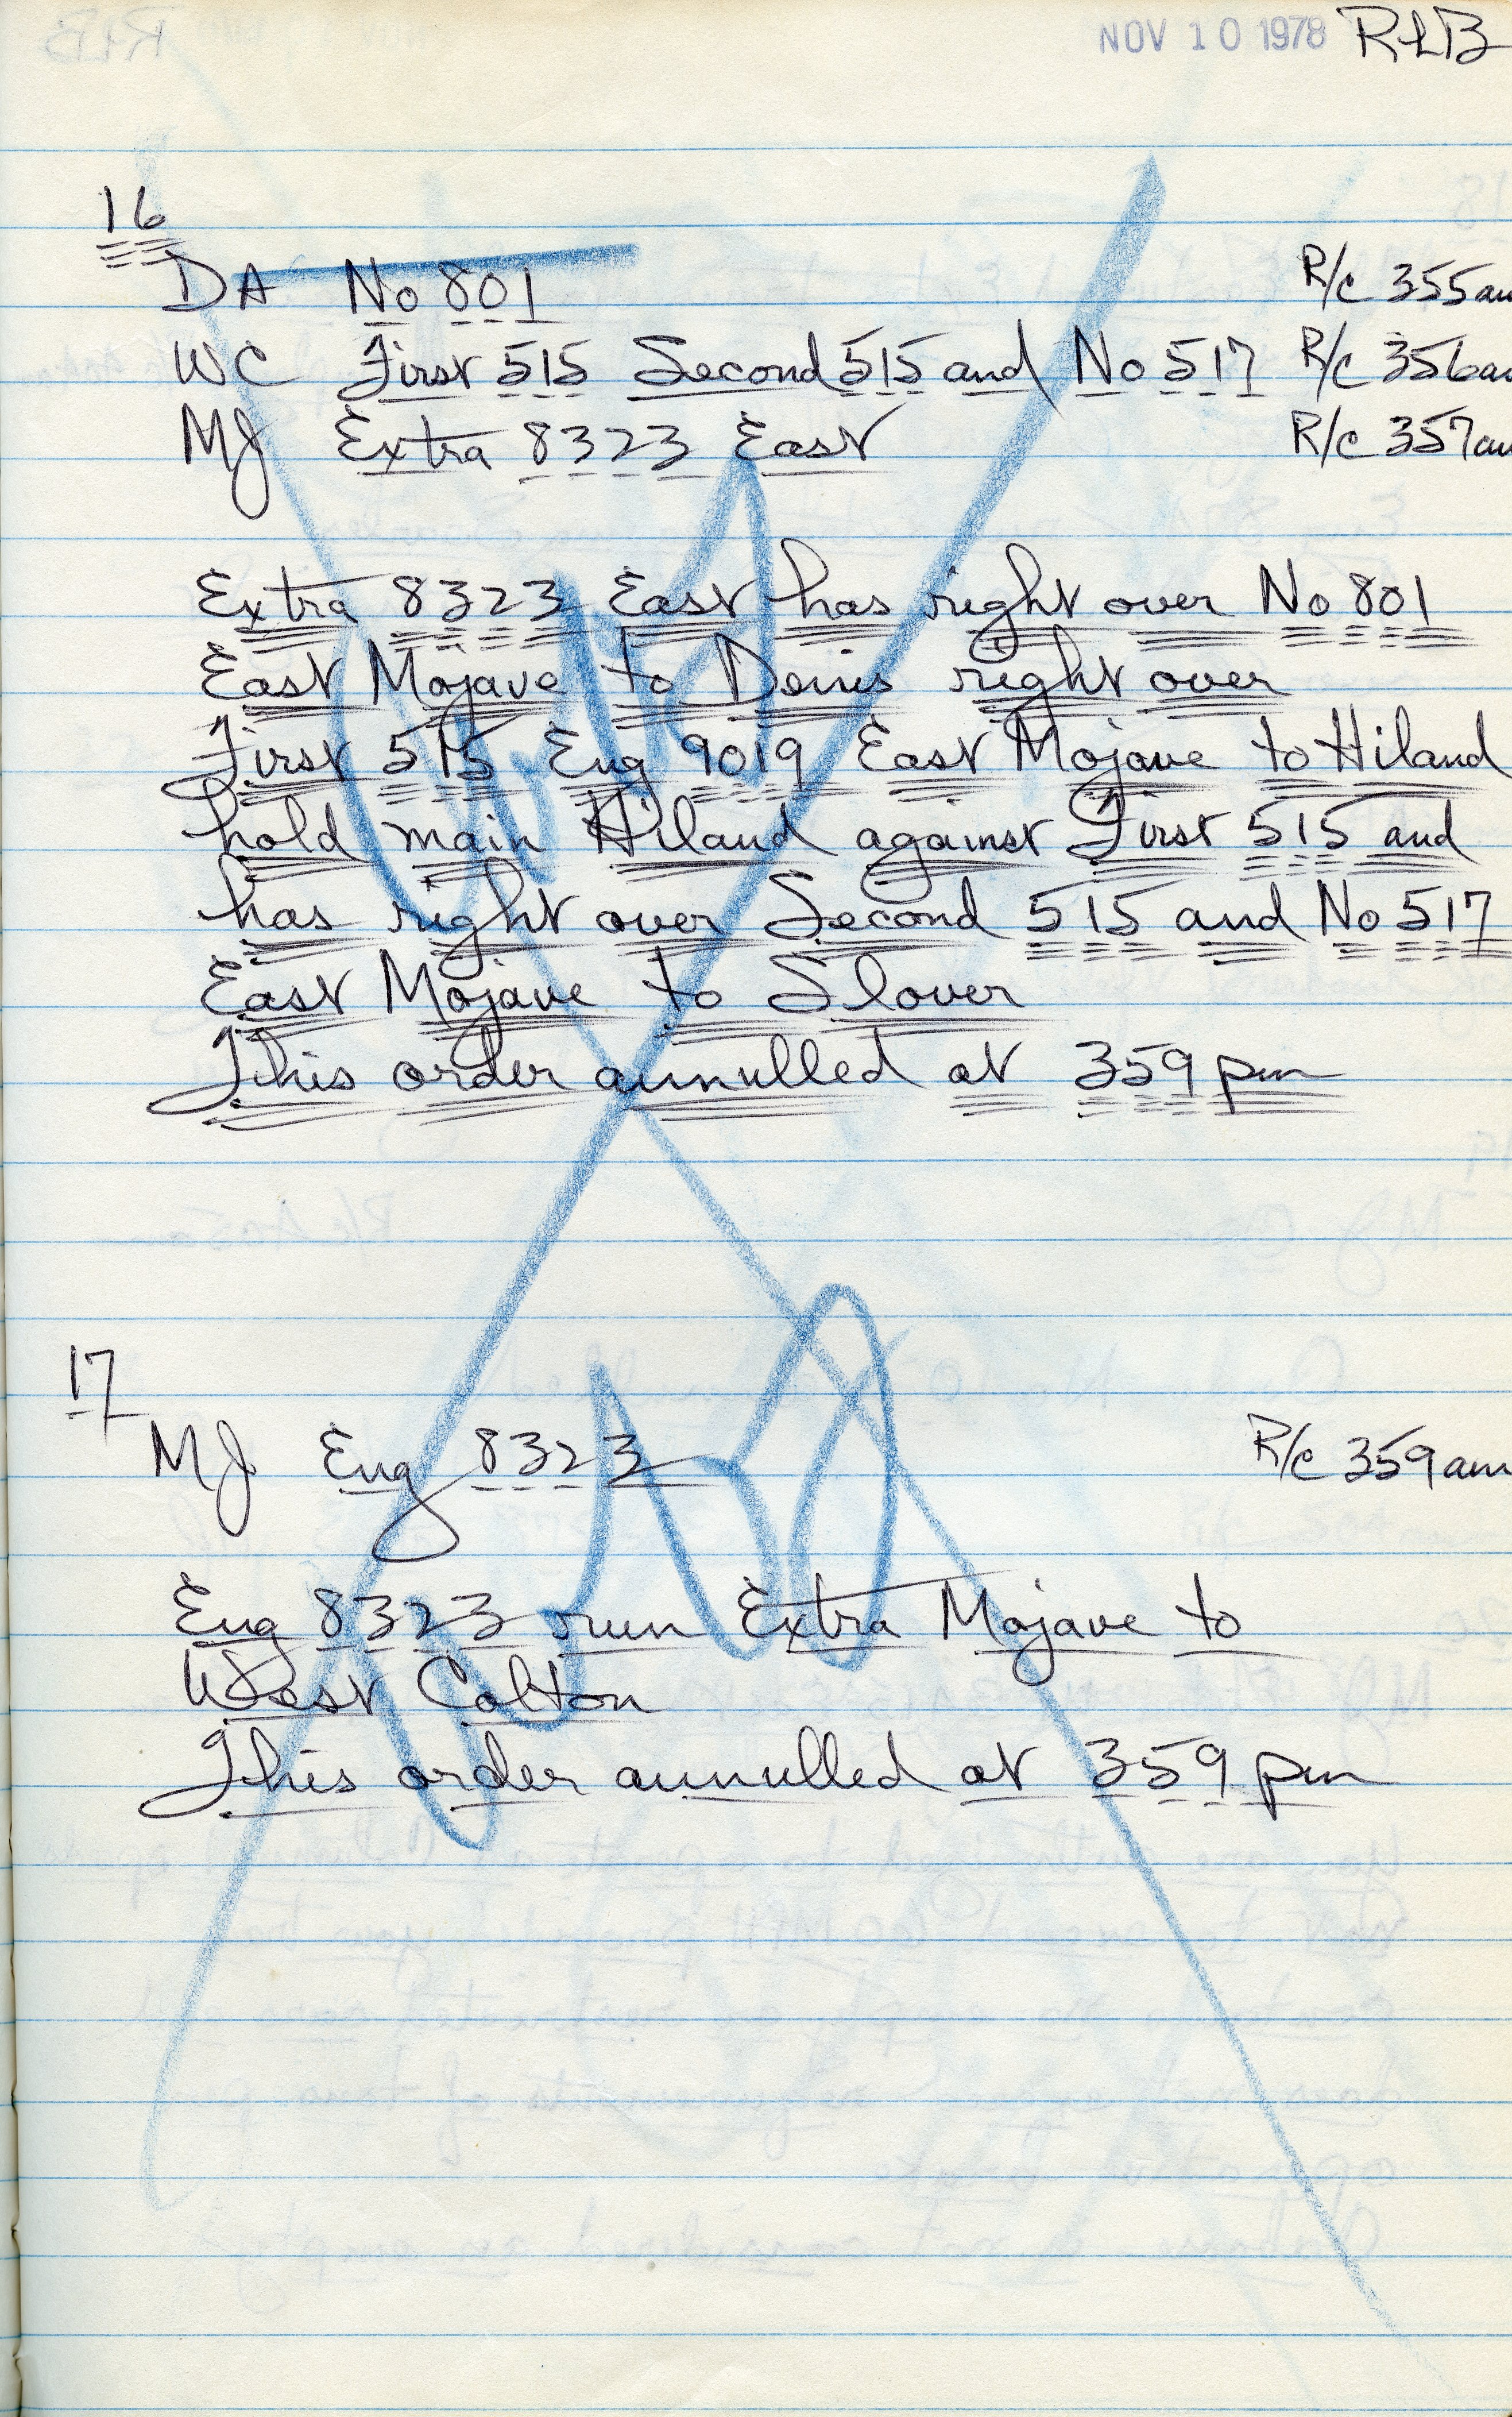 NOV 10 1978 RLB
16
DA No 801 R/c 355am
WC First 515 Second 515 and No 517 R/c 356am
MJ Extra 8323 East R/c 357am
Extra 8323 East has right over No 801
East Mojave to Denis right over
First 515 Eng 9019 East Mojave to Hiland
hold main Hiland against First 515 and
has right over Second 515 and No 517
East Mojave to Slover
This order annulled at 359 pm
17
MJ Eng 8323 R/c 359am
Eng 8323 run Extra Mojave to
West Colton
This order annulled at 359 pm